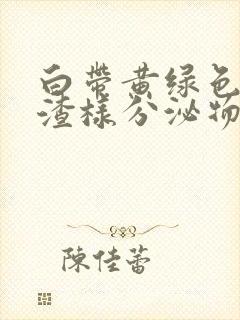 白带黄绿色
渣样分泌物
陳佳蕾